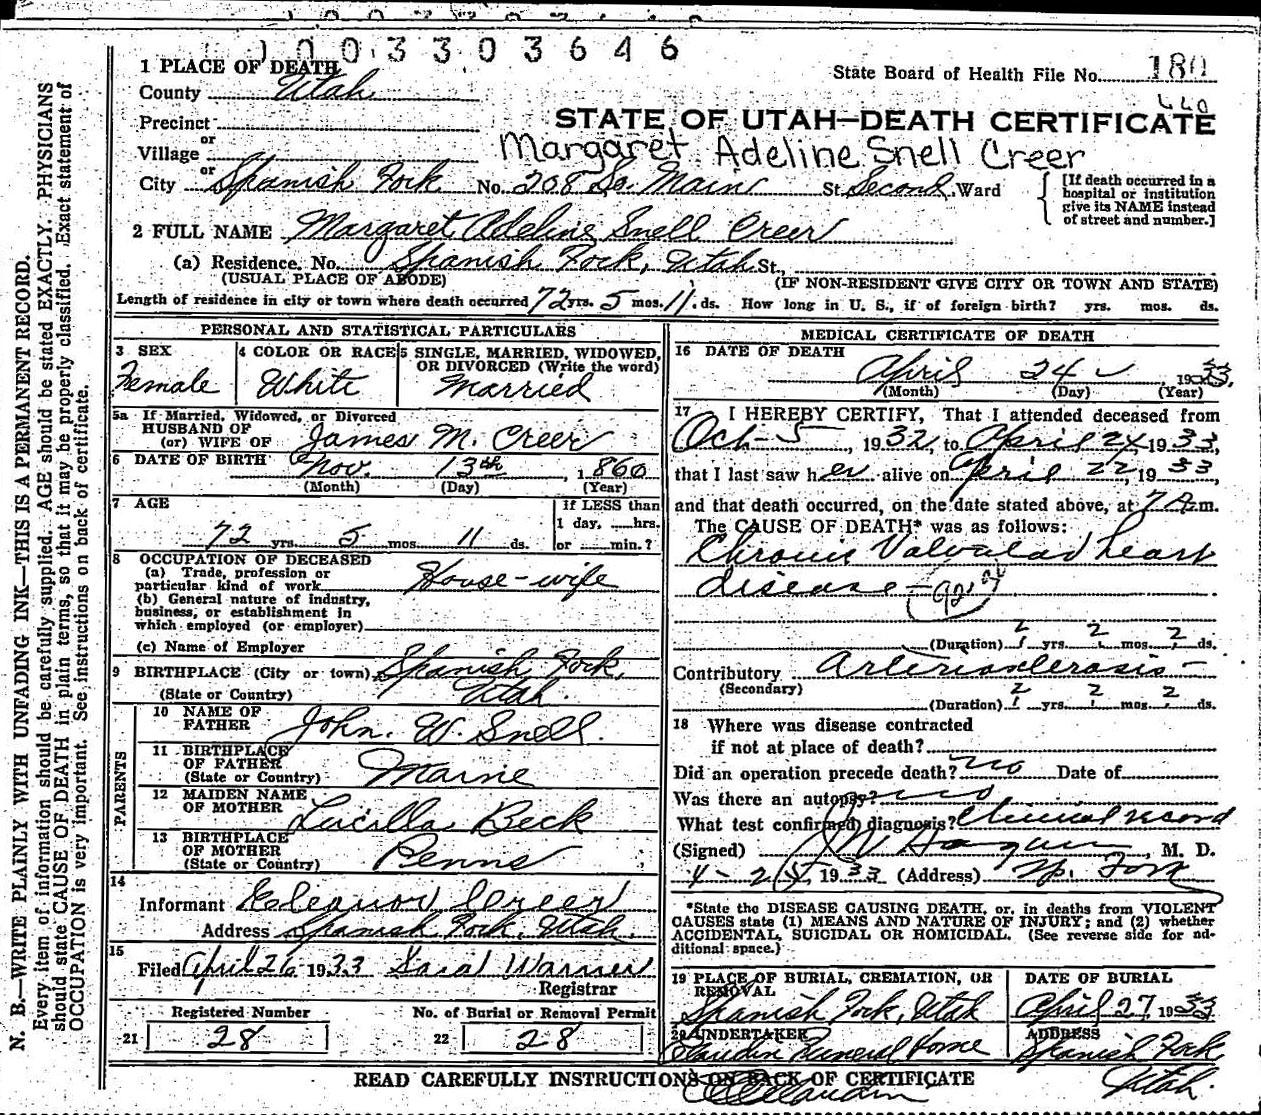 1003303646
1 PLACE OF DEATH
State Board of Health File No. 180
County Utah
440
Precinct
STATE OF UTAH—DEATH CERTIFICATE
or
Village
Margaret Adeline Snell Creer
or
City Spanish Fork No. 208 So. Main St. Second Ward
[If death occurred in a
hospital or institution
give its NAME instead
of street and number.]
2 FULL NAME Margaret Adeline Snell Creer
(a) Residence. No. Spanish Fork, Utah St.,
(USUAL PLACE OF ABODE) (IF NON-RESIDENT GIVE CITY OR TOWN AND STATE)
Length of residence in city or town where death occurred 72 yrs. 5 mos. 11 ds. How long in U. S., if of foreign birth? yrs. mos. ds.
PERSONAL AND STATISTICAL PARTICULARS
3 SEX
Female
4 COLOR OR RACE
White
5 SINGLE, MARRIED, WIDOWED,
OR DIVORCED (Write the word)
Married
5a If Married, Widowed, or Divorced
HUSBAND OF
(or) WIFE OF James M. Creer
6 DATE OF BIRTH Nov. 13th, 1860
(Month) (Day) (Year)
7 AGE
72 yrs. 5 mos. 11 ds.
If LESS than
1 day, hrs.
or min.?
8 OCCUPATION OF DECEASED
(a) Trade, profession or
particular kind of work House-wife
(b) General nature of industry,
business, or establishment in
which employed (or employer)
(c) Name of Employer
9 BIRTHPLACE (City or town) Spanish Fork,
(State or Country) Utah.
PARENTS
10 NAME OF
FATHER John. W. Snell.
11 BIRTHPLACE
OF FATHER
(State or Country) Maine
12 MAIDEN NAME
OF MOTHER Lucilla Beck
13 BIRTHPLACE
OF MOTHER
(State or Country) Penns
14
Informant Eleanor Creer
Address Spanish Fork, Utah.
15
Filed April 26 1933 Sarah Warner
Registrar
Registered Number No. of Burial or Removal Permit
21 28 22 28
MEDICAL CERTIFICATE OF DEATH
16 DATE OF DEATH
April 24 1933.
(Month) (Day) (Year)
17 I HEREBY CERTIFY, That I attended deceased from
Oct- 5, 1932, to April 24, 1933,
that I last saw her alive on April 22, 1933,
and that death occurred, on the date stated above, at 7 A. m.
The CAUSE OF DEATH* was as follows:
Chronic Valvular heart
disease -
(Duration) yrs. 2 mos. 2 ds.
Contributory Arteriosclerosis -
(Secondary)
(Duration) yrs. 2 mos. 2 ds.
18 Where was disease contracted
if not at place of death?
Did an operation precede death? no Date of
Was there an autopsy? no
What test confirmed diagnosis? Clinical record
(Signed) , M. D.
1933 (Address) Sp. Fork
*State the DISEASE CAUSING DEATH, or, in deaths from VIOLENT
CAUSES state (1) MEANS AND NATURE OF INJURY; and (2) whether
ACCIDENTAL, SUICIDAL OR HOMICIDAL. (See reverse side for ad-
ditional space.)
19 PLACE OF BURIAL, CREMATION, OR
REMOVAL
Spanish Fork, Utah
DATE OF BURIAL
April 27, 1933
20 UNDERTAKER
Claudin Funeral Home
ADDRESS
Spanish Fork
Utah.
READ CAREFULLY INSTRUCTIONS ON BACK OF CERTIFICATE
N. B.—WRITE PLAINLY WITH UNFADING INK—THIS IS A PERMANENT RECORD.
Every item of information should be carefully supplied. AGE should be stated EXACTLY. PHYSICIANS
should state CAUSE OF DEATH in plain terms, so that it may be properly classified. Exact statement of
OCCUPATION is very important. See instructions on back of certificate.